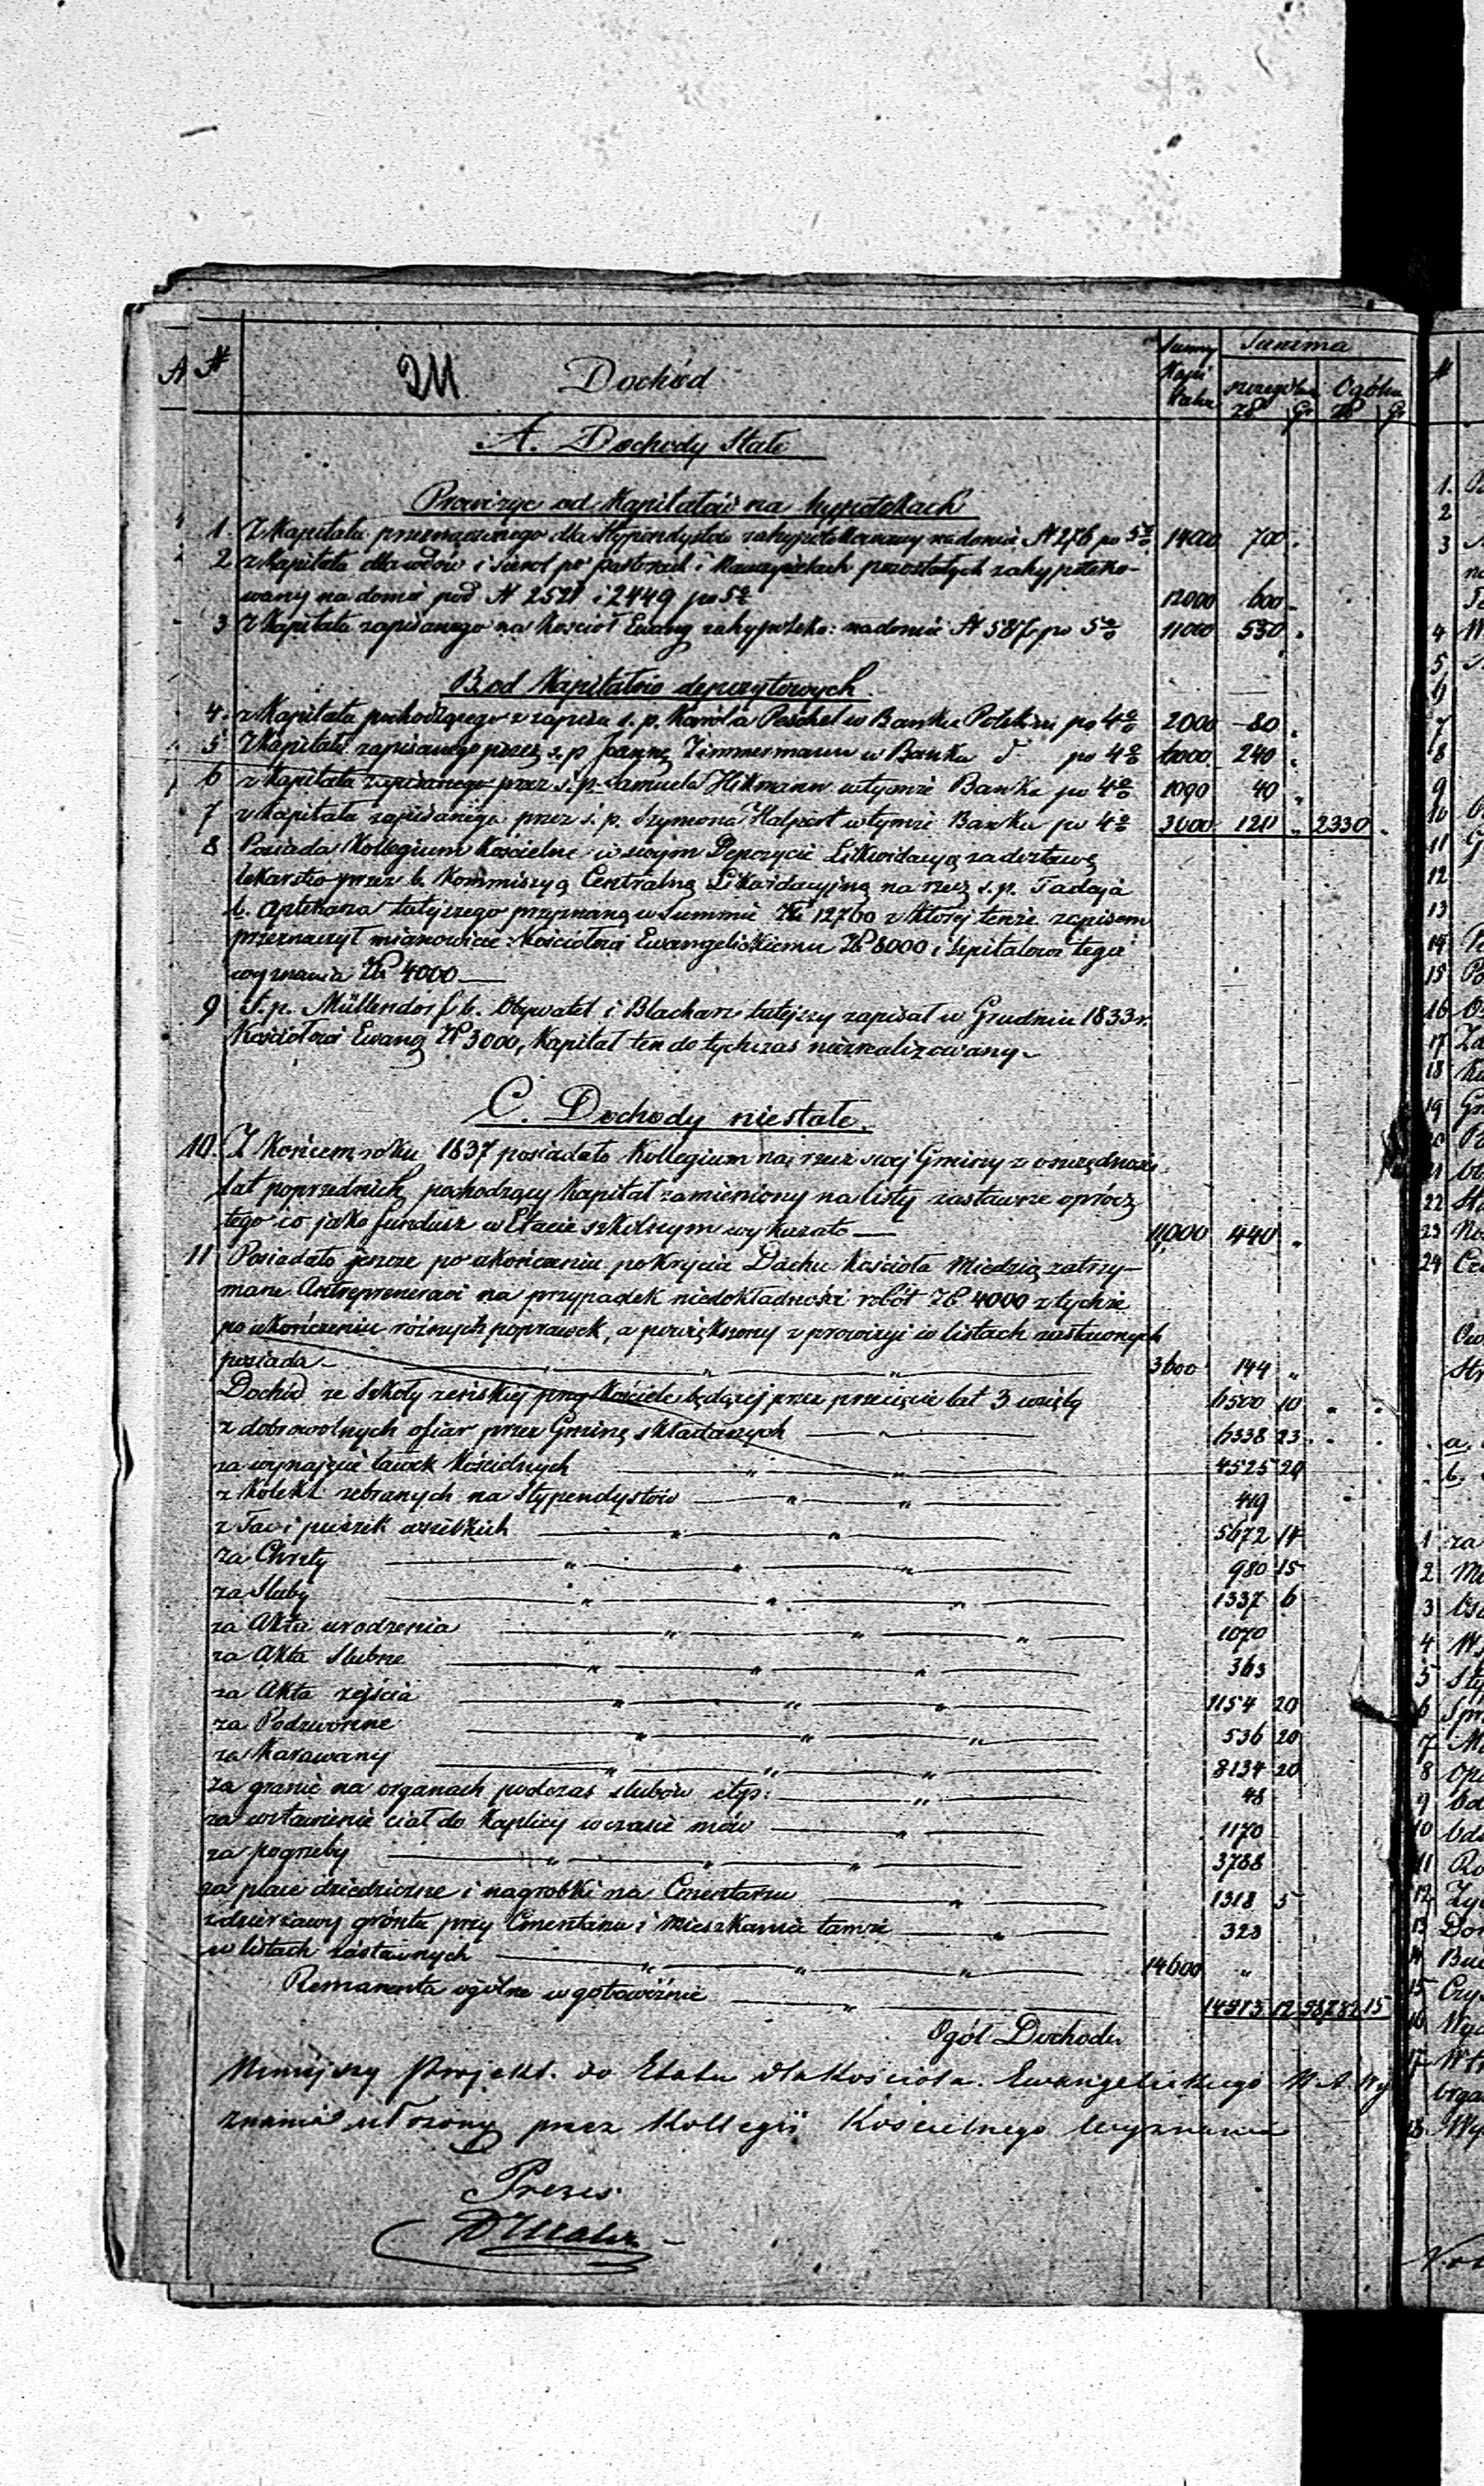 № Dochód Summy Kapitału Summa szczególna Ogólna
211
Zł Gr Zł Gr
A. Dochody Stałe
Prowizye od Kapitałów na hypotekach
1. Z Kapitału przeznaczonego dla Stypendystów zahypotekowany na domie № 276 po 5% 14000 700
2 z Kapitału dla wdów i sierot po Pastorach i Nauczycielach pozostałych zahypoteko-
wany na domie pod № 2521 i 2449 po 5% 12000 600
3 Z Kapitału zapisanego na Kościół Ewang zahypoteko: na domie № 587 po 5% 11000 550
B. od Kapitałów depozytowych
4. z Kapitału pochodzącego z zapisu s. p. Karola Peschel w Banku Polskim po 4% 2000 80
5 Z Kapitału zapisanego przez s. p Joannę Zimmermann w Banku d po 4% 6000 240
6 z Kapitału zapisanego przez s. p. Samuela Hikmann w tymże Banku po 4% 1000 40
7 z Kapitału zapisanego przez s. p. Szymona Halpert w tymże Banku po 4% 3000 120 2330
8 Posiada Kollegium Kościelne w swojm Depozycie Likwidacyą za dostawę
lekarstw przez b. Kommissyą Centralną Likwidacyjną na rzecz s. p. Tadeja
b. Aptekarza tutejszego przyznaną w Summie Zł 12760 z której tenże zapisem
przeznaczył mianowicie: Kościołowi Ewangelickiemu Zł 8000 i szpitalowi tegoż
wyznania Zł 4000
9 S. p. Müllendorf b. Obywatel i Blacharz tutejszy zapisał w Grudniu 1833 r.
Kościołowi Ewang Zł 3000, Kapitał ten do tychczas niezrealizowany
C. Dochody niestałe.
10. Z Końcem roku 1837 posiadało Kollegium na rzecz swej Gminy z oszczędności
lat poprzednich pochodzący Kapitał zamieniony na listy zastawne oprócz
tego co jako fundusz w Etacie szkolnym wykazało 11,000 440
11 Posiadało jeszcze po ukończeniu pokrycia Dachu Kościoła Miedzią zatrzy-
mane Antreprenerowi na przypadek niedokładności robót Zł 4000 z tychże
po ukończeniu różnych poprawek, a powiększony z prowizyi w listach zastawnych
posiada 3600 144
Dochód ze Szkoły żeńskiej przy Kościele będącej przez przecięcie lat 3 wzięty 6500 10
z dobrowolnych ofiar przez Gminę składanych 6338 23
za wynajęcie ławek Kościelnych 4525 20
z Kolekt zebranych na Stypendystów 419
z Tac i puszek wszelkich 5672 14
za Chrzty 980 15
za Sluby 1337 6
za Akta urodzenia 1070
za Akta Slubne 363
za Akta zejścia 1154 20
za Podzwonne 536 20
za Karawany 8134 20
za granie na organach podczas slubów etp: 48
za wstawienie ciał do Kaplicy w czasie mów 1170
za pogrzeby 3788
za place dziedziczne i nagrobki na Cmentarzu 1318 5
z dzierżawy gróntu przy Cmentarzu i Mieszkania tamże 323
w listach zastawnych 14600
Remanenta ogólne w gotowiźnie 14513 12 58782 15
Ogół Dochodu
Niniejszy Projekt do Etatu dla Kościoła Ewangelickiego N A Wy
znania ułożony przez Kollegii Kościelnego Wyznania
Prezes